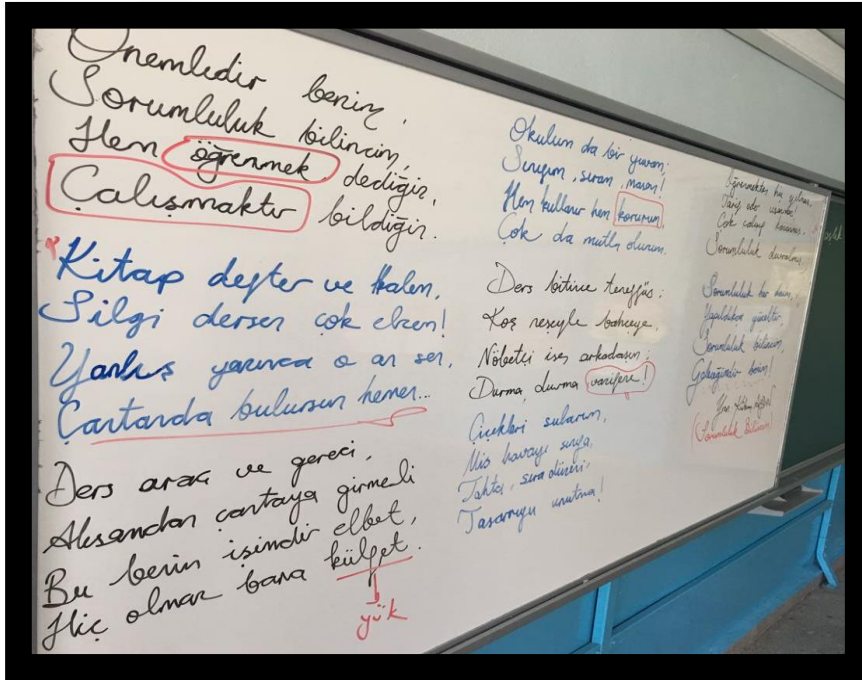 Önemlidir benim,
Sorumluluk bilincim,
Hem öğrenmek dediğin,
Çalışmaktır bildiğin.
Kitap defter ve kalem,
Silgi dersen çok elzem!
Yanlış yazınca o an sen,
Çantanda bulursun hemen...
Ders aracı ve gereci,
Akşamdan çantaya girmeli
Bu benim işimdir elbet,
Hiç olmaz bana külfet.
yük
Okulum da bir yuvam;
Sınıfım, sıram, masam!
Hem kullanır hem korurum,
Çok da mutlu olurum.
Ders bitince teneffüs;
Koş neşeyle bahçeye.
Nöbetçi ise arkadaşın;
Durma, durma vazifene!
Çiçekleri sularım,
Mis havayı sınıfa,
Tahta, sıra düzeni,
Tasarrufu unutma!
Öğrenmekten hiç yılmaz,
Çok çalışıp
Sorumluluk
Sorumluluk her daim,
Yapıldıkça yüceltir,
Sorumluluk bilincim,
Geleceğimdir benim!
(Sorumluluk Bilincim)